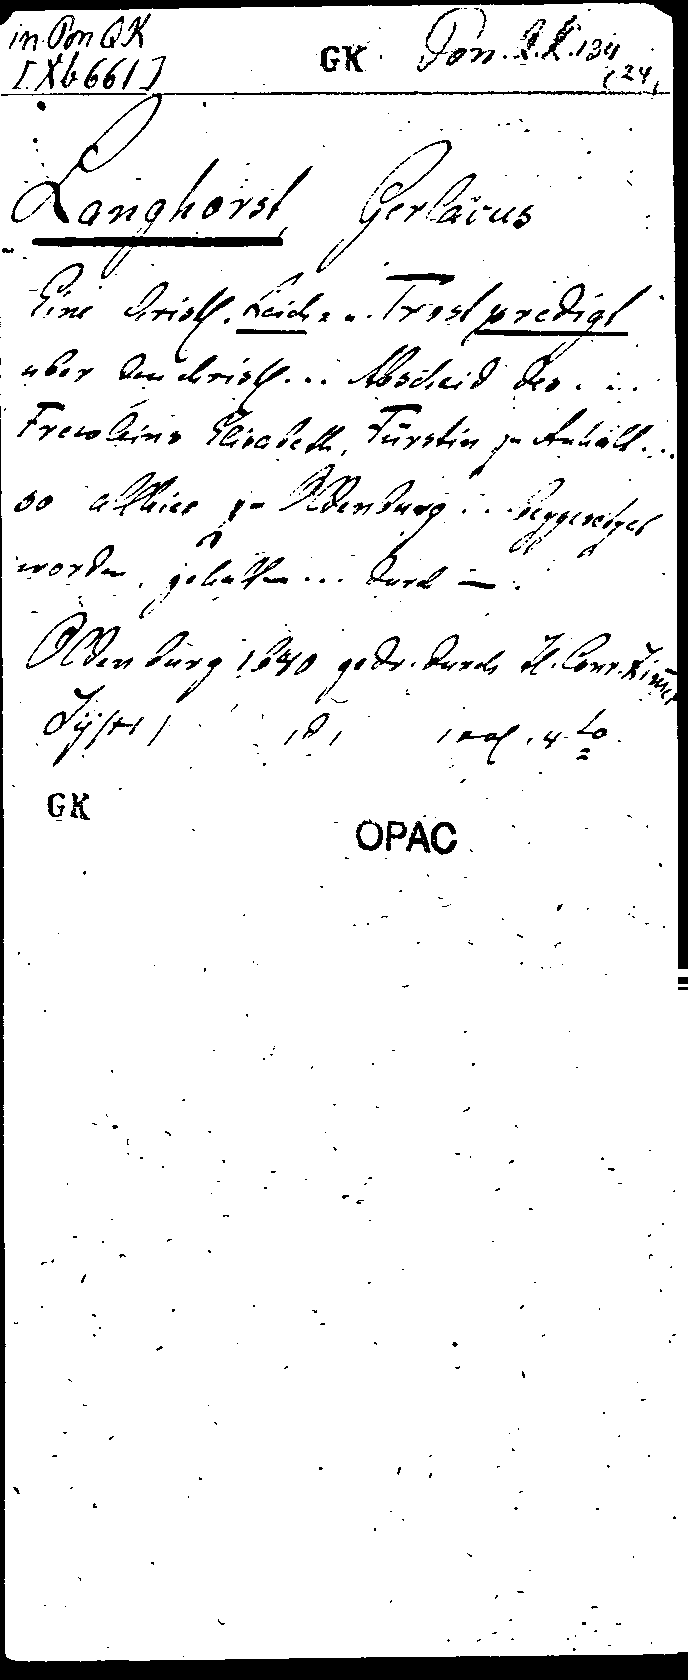 in Pon QK
[Xb 661]
GK Pon. Q.K. 134
(24)
Langhorst, Gerlacus
Eine christl. Leich- u. Trostpredigt
uber den christl... Abscheid des...
Frewleins Elisabeth, Fürstin zu Anhalt...
so allhier zu Oldenburg... beygesetzet
worden, gehalten... durch —.
Oldenburg 1640 gedr. durch H. Conr. Zimmer
GK
OPAC